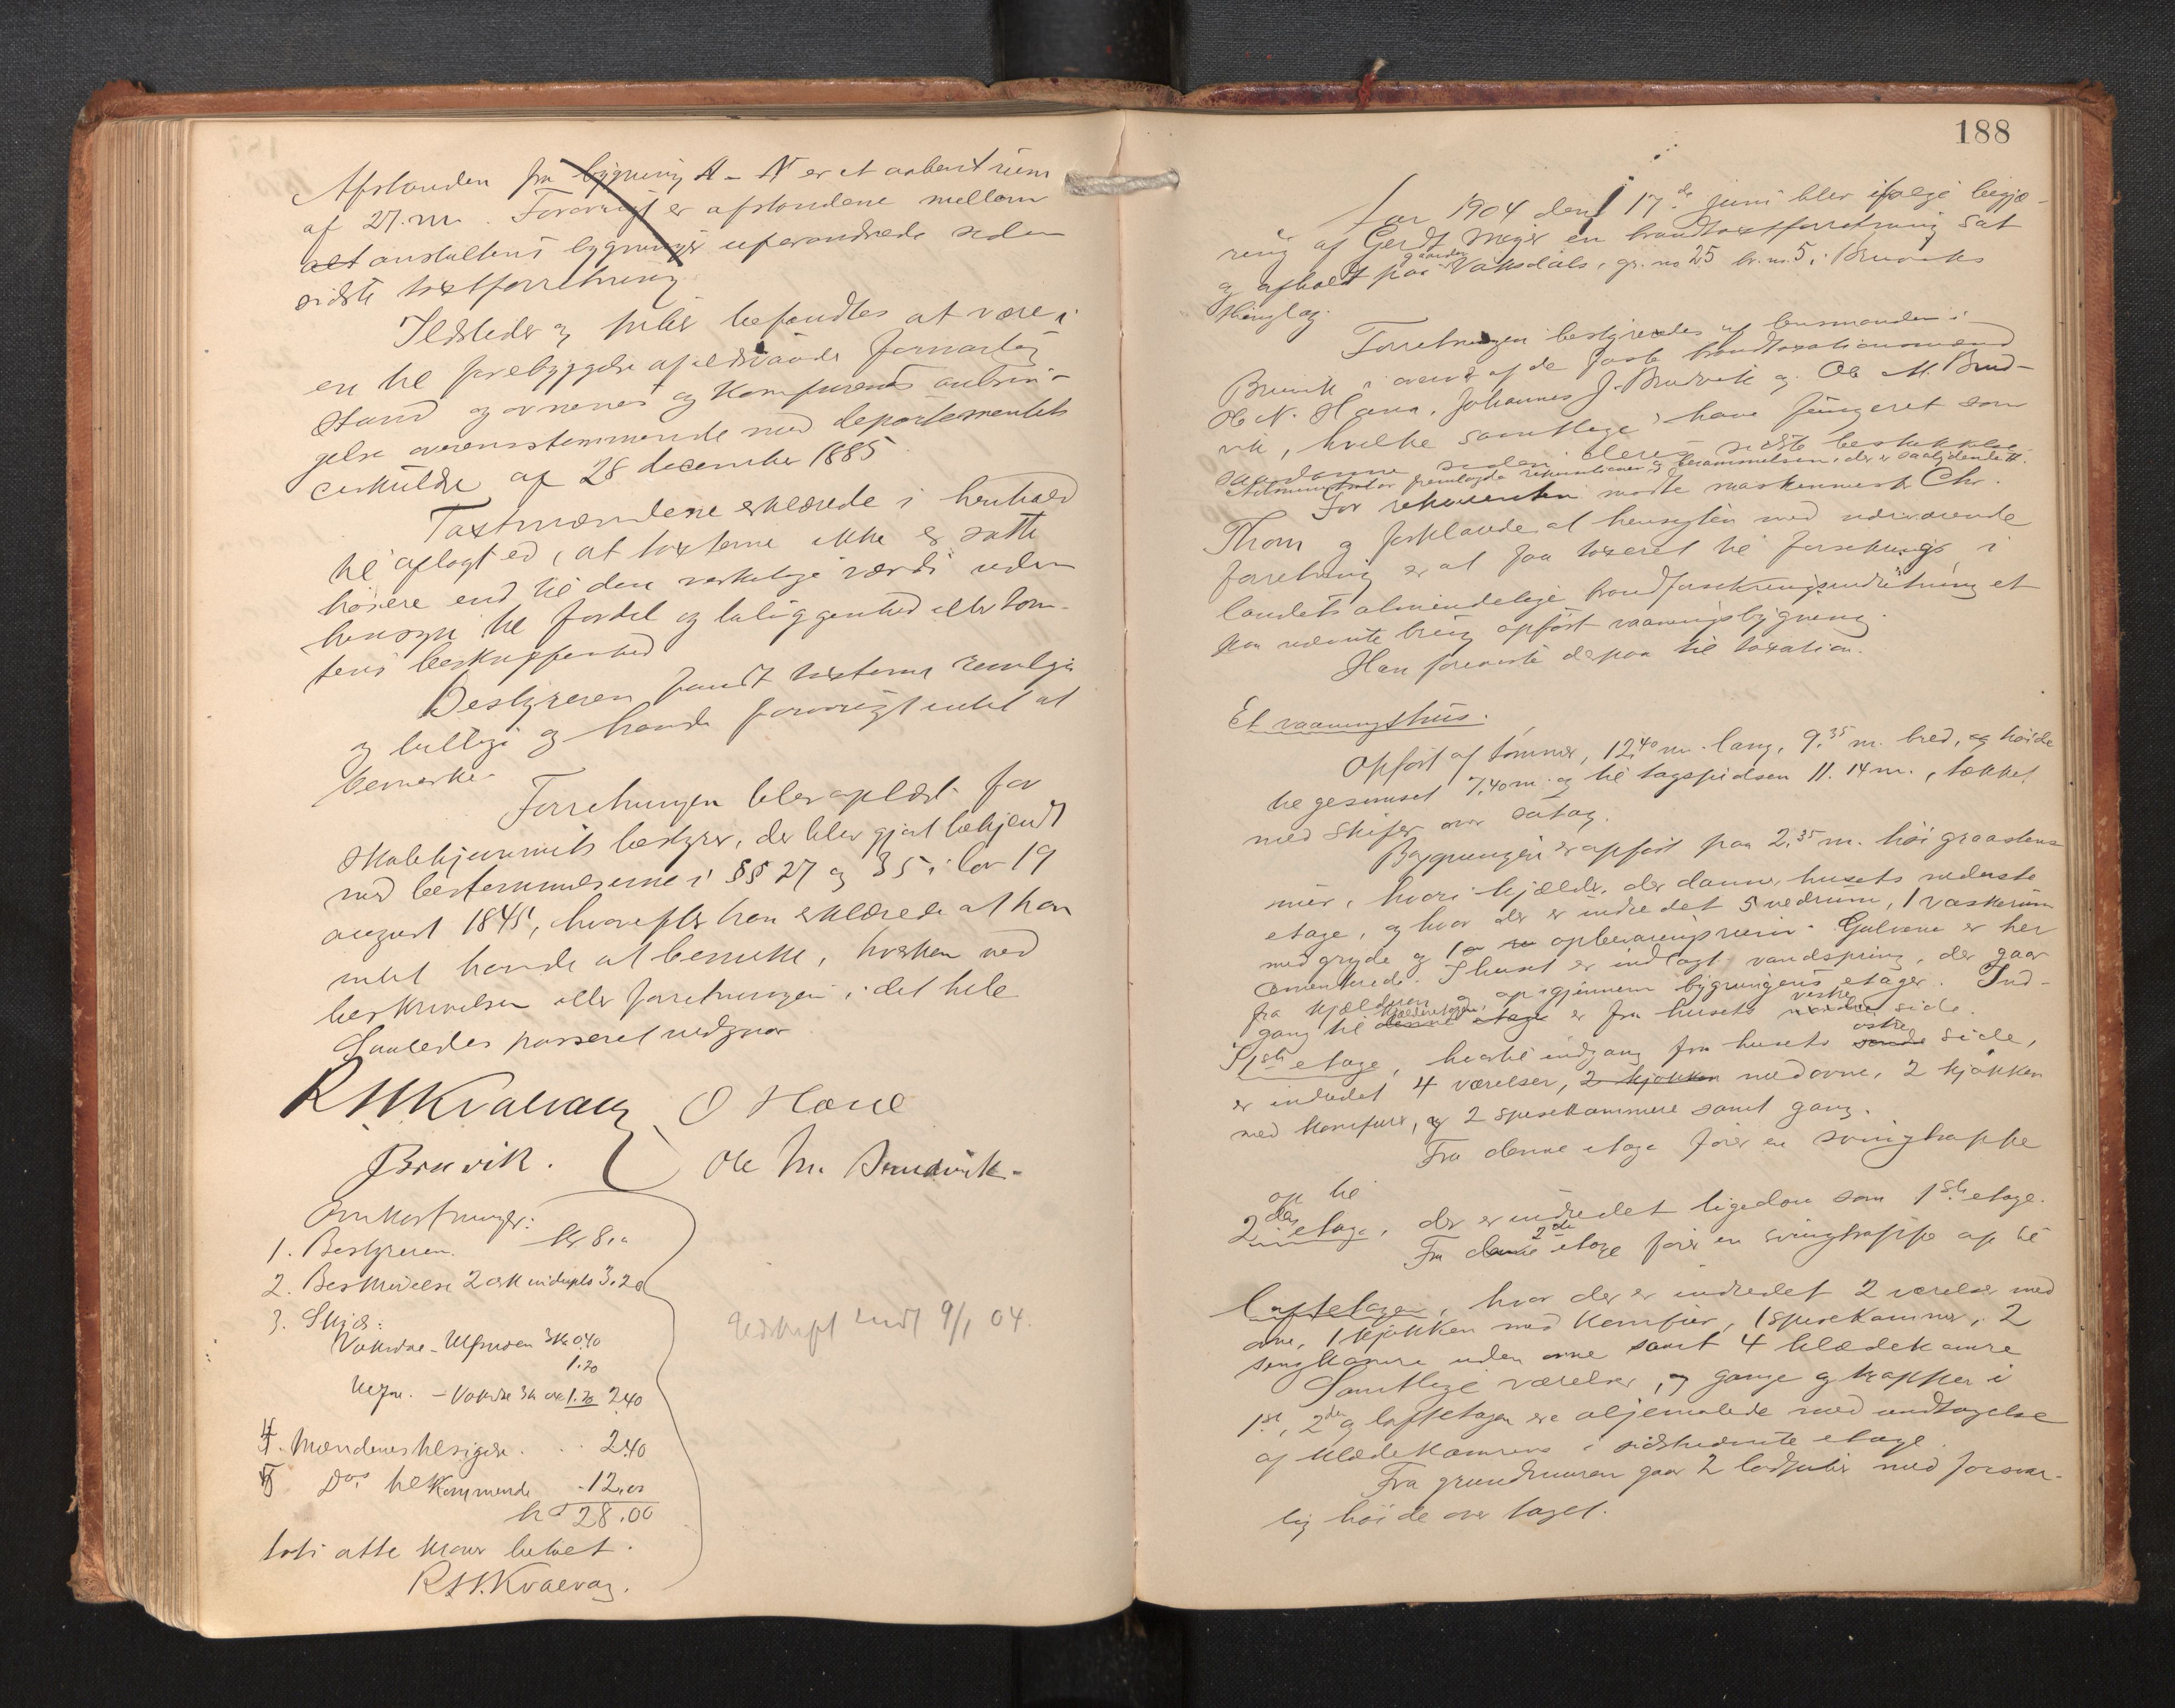 Afstanden fra bygning A - N er et aabent rum
af 27. m. Forøvrigt er afstandene mellem
alt anstaltens bygninger uforandrede siden
sidste taxtforretning
Ildsteder og piber befandtes at være i
en til forebyggelse af ildsvaade forsvarlig
stand og ovnenes og komfurenes anbrin-
gelse overensstemmende med departementets
cirkulære af 28 december 1885.
Taxtmændene erklærede i henhold
til aflagt ed, at taxterne ikke er satte
høiere end til den virkelige værdi uden
hensyn til fordel og beliggenhed eller tom-
tens beskaffenhed
Bestyreren fandt taxterne rimelige
og billige og havde forøvrigt intet at
bemerke.
Forretningen blev oplæst for
bestyrer, der blev gjort bekjendt
med bestemmelserne i §§ 27 og 35 i lov 19
august 1845, hvorefter han erklærede at han
intet havde at bemerke, hverken ved
beskrivelsen eller forretningen i det hele
Saaledes passeret bevidner
R H Kvaevaag O Hane
J Bruvik. Ole M. Brudvik.
Omkostninger:
1. Bestyreren. kr 8,00
2. Beskrivelse 2 ark in duplo 3.20
3. Skyds:
3 km 0.40
1.20
3 km 1.20 2.40
4. Mændenes tilsigelse. . . 2.40
5 Dos tilkommende - 12,00
kr 28.00
toti otte kroner betalt.
R H. Kvaevaag.
Udskrift sendt 9/1 04.
188
Aar 1904 den 17de juni blev ifølge begjæ-
ring af Gerdt Meyer en brandtaxtforretning sat
og afholdt paa gaarden Vaksdal, gr. no 25 br. no. 5 i Bruviks
thinglag.
Forretningen bestyredes af lensmanden i
Bruvik i overvær af de faste brandtaxationsmænd
Ole N. Hana, Johannes J. Brudvik og Ole M. Brud-
vik, hvilke samtlige have fungeret som
saadanne siden deres sidste beskikkelse.
Administrator fremlagde rekvisitionen og berammelsen, der er saalydende #.
For rekvirenten mødte maskinmester Chr.
Thom og forklarede at hensigten med nærværende
forretning er at faa taxeret til forsikring i
landets almindelige brandforsikringsindretning et
paa nævnte brug opført vaaningsbygning.
Han foreviste derpaa til taxation.
Et vaaningshus.
Opført af tømmer, 12,40 m. lang, 9,35 m. bred, og høide
til gesimset 7,40 m. og til tagspidsen 11.14 m., tækket
med skifer over sutag.
Bygningen er opført paa 2,35 m. høi graastens
mur, hvori kjælder, der danner husets nederste
etage, og hvor der er indredet 5 vedrum, 1 vaskerum
med gryde og 1 opbevaringsrum. Gulvene er her
cementerede. I huset er indlagt vandspring, der gaar
fra kjælderen og op igjennem bygningens etager. Ind-
gang til denne etage kjælderetagen er fra husets nordre vestre side.
I 1ste etage, hvortil indgang fra husets søndre østre side,
er indredet 4 værelser, 2 kjøkken med ovne, 2 kjøkken
med komfur, og 2 spisekammere samt gang.
Fra denne etage fører en svingtrappe
op til
2den etage, der er indredet ligedan som 1ste etage.
Fra denne 2de etage fører en svingtrappe op til
loftetagen, hvor der er indredet 2 værelser med
ovne, 1 kjøkken med komfur, 1 spisekammer, 2
sengkamre uden ovne samt 4 klædekamre
Samtlige værelser, og gange og trapper i
1ste, 2den og loftetagen ere oljemalede med undtagelse
af klædekamrene i sidstnævnte etage.
Fra grundmuren gaar 2 lodpiber med forsvar-
lig høide over taget.